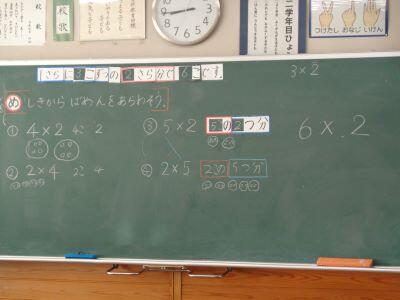 校歌
二学年目ひょ
つけたし おなじ いけん
1さらに3こずつの2さら分で6こです。
3×2
め しきから ばめんをあらわそう。
① 4×2 4こ 2
② 2×4 2こ 4
③ 5×2 5の2つ分
④ 2×5 2この5つ分
6×2